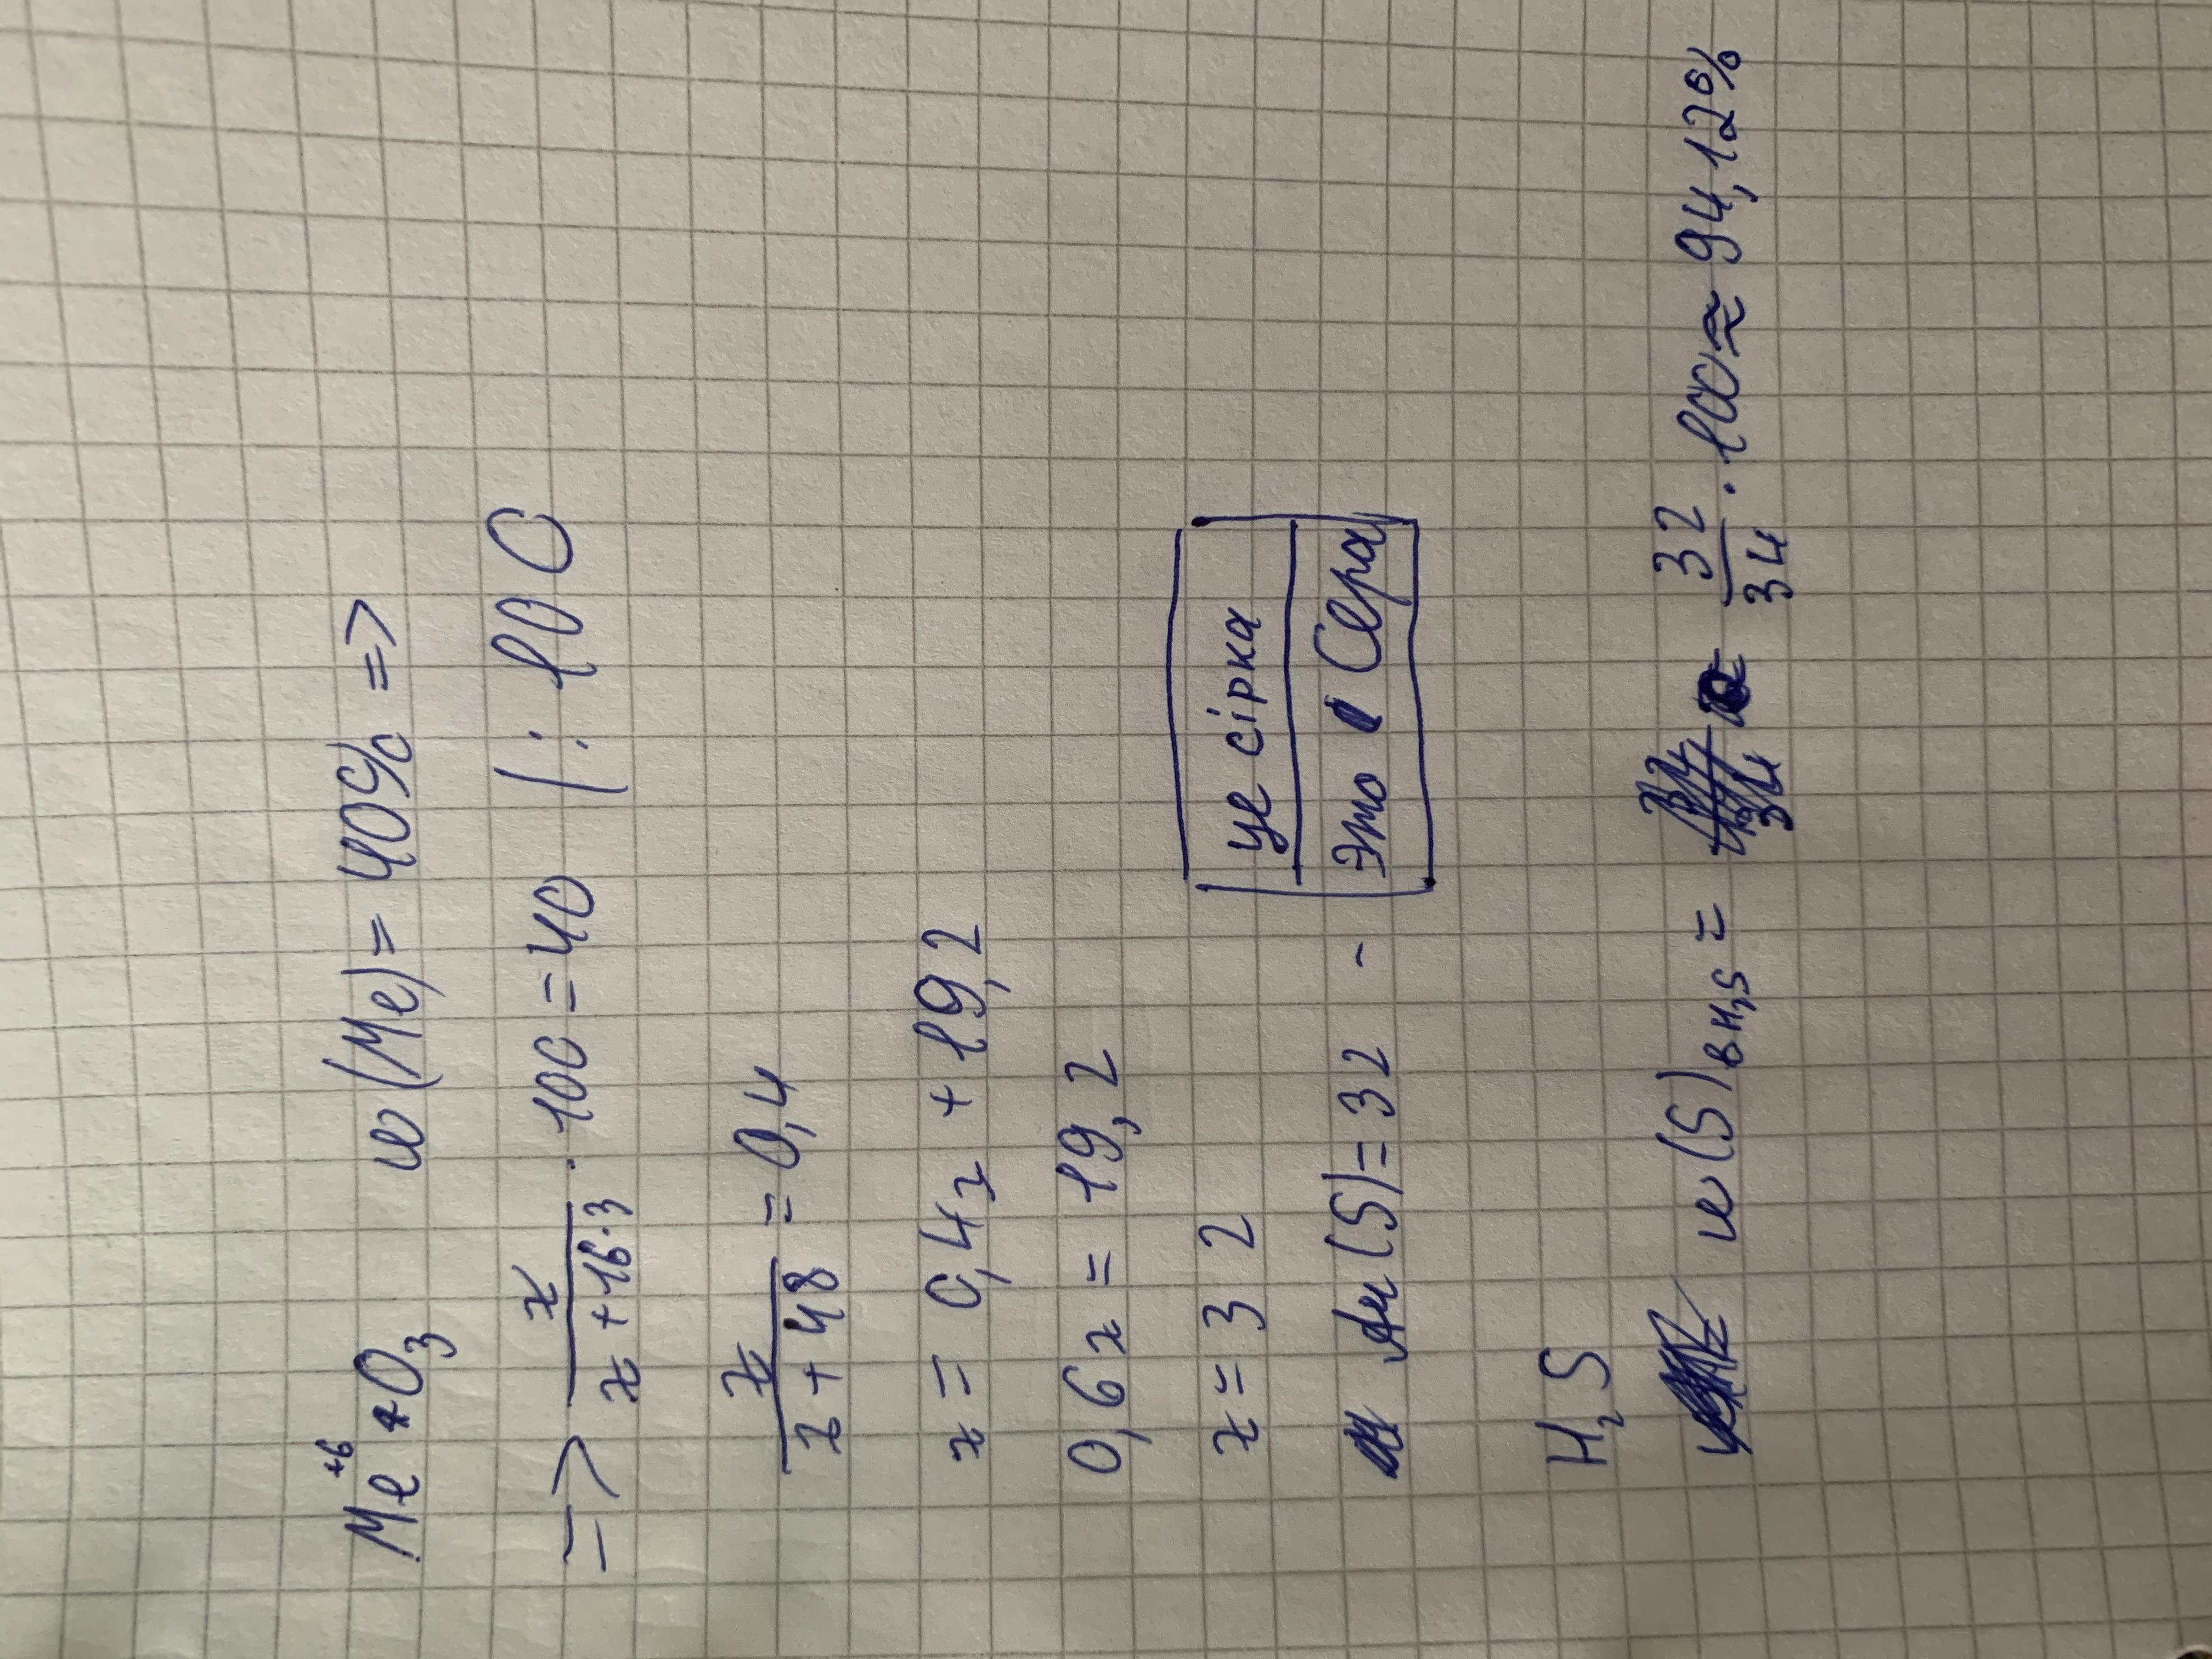 Me⁺⁶O₃ w(Me) = 40% =>
=> x/(x + 16·3) · 100 = 40 | : 100
x/(x + 48) = 0,4
x = 0,4x + 19,2
0,6x = 19,2
x = 32
це сірка
Ar(S) = 32 - это Сера
H₂S
w(S)в H₂S = 32/34 · 100 ≈ 94,12%